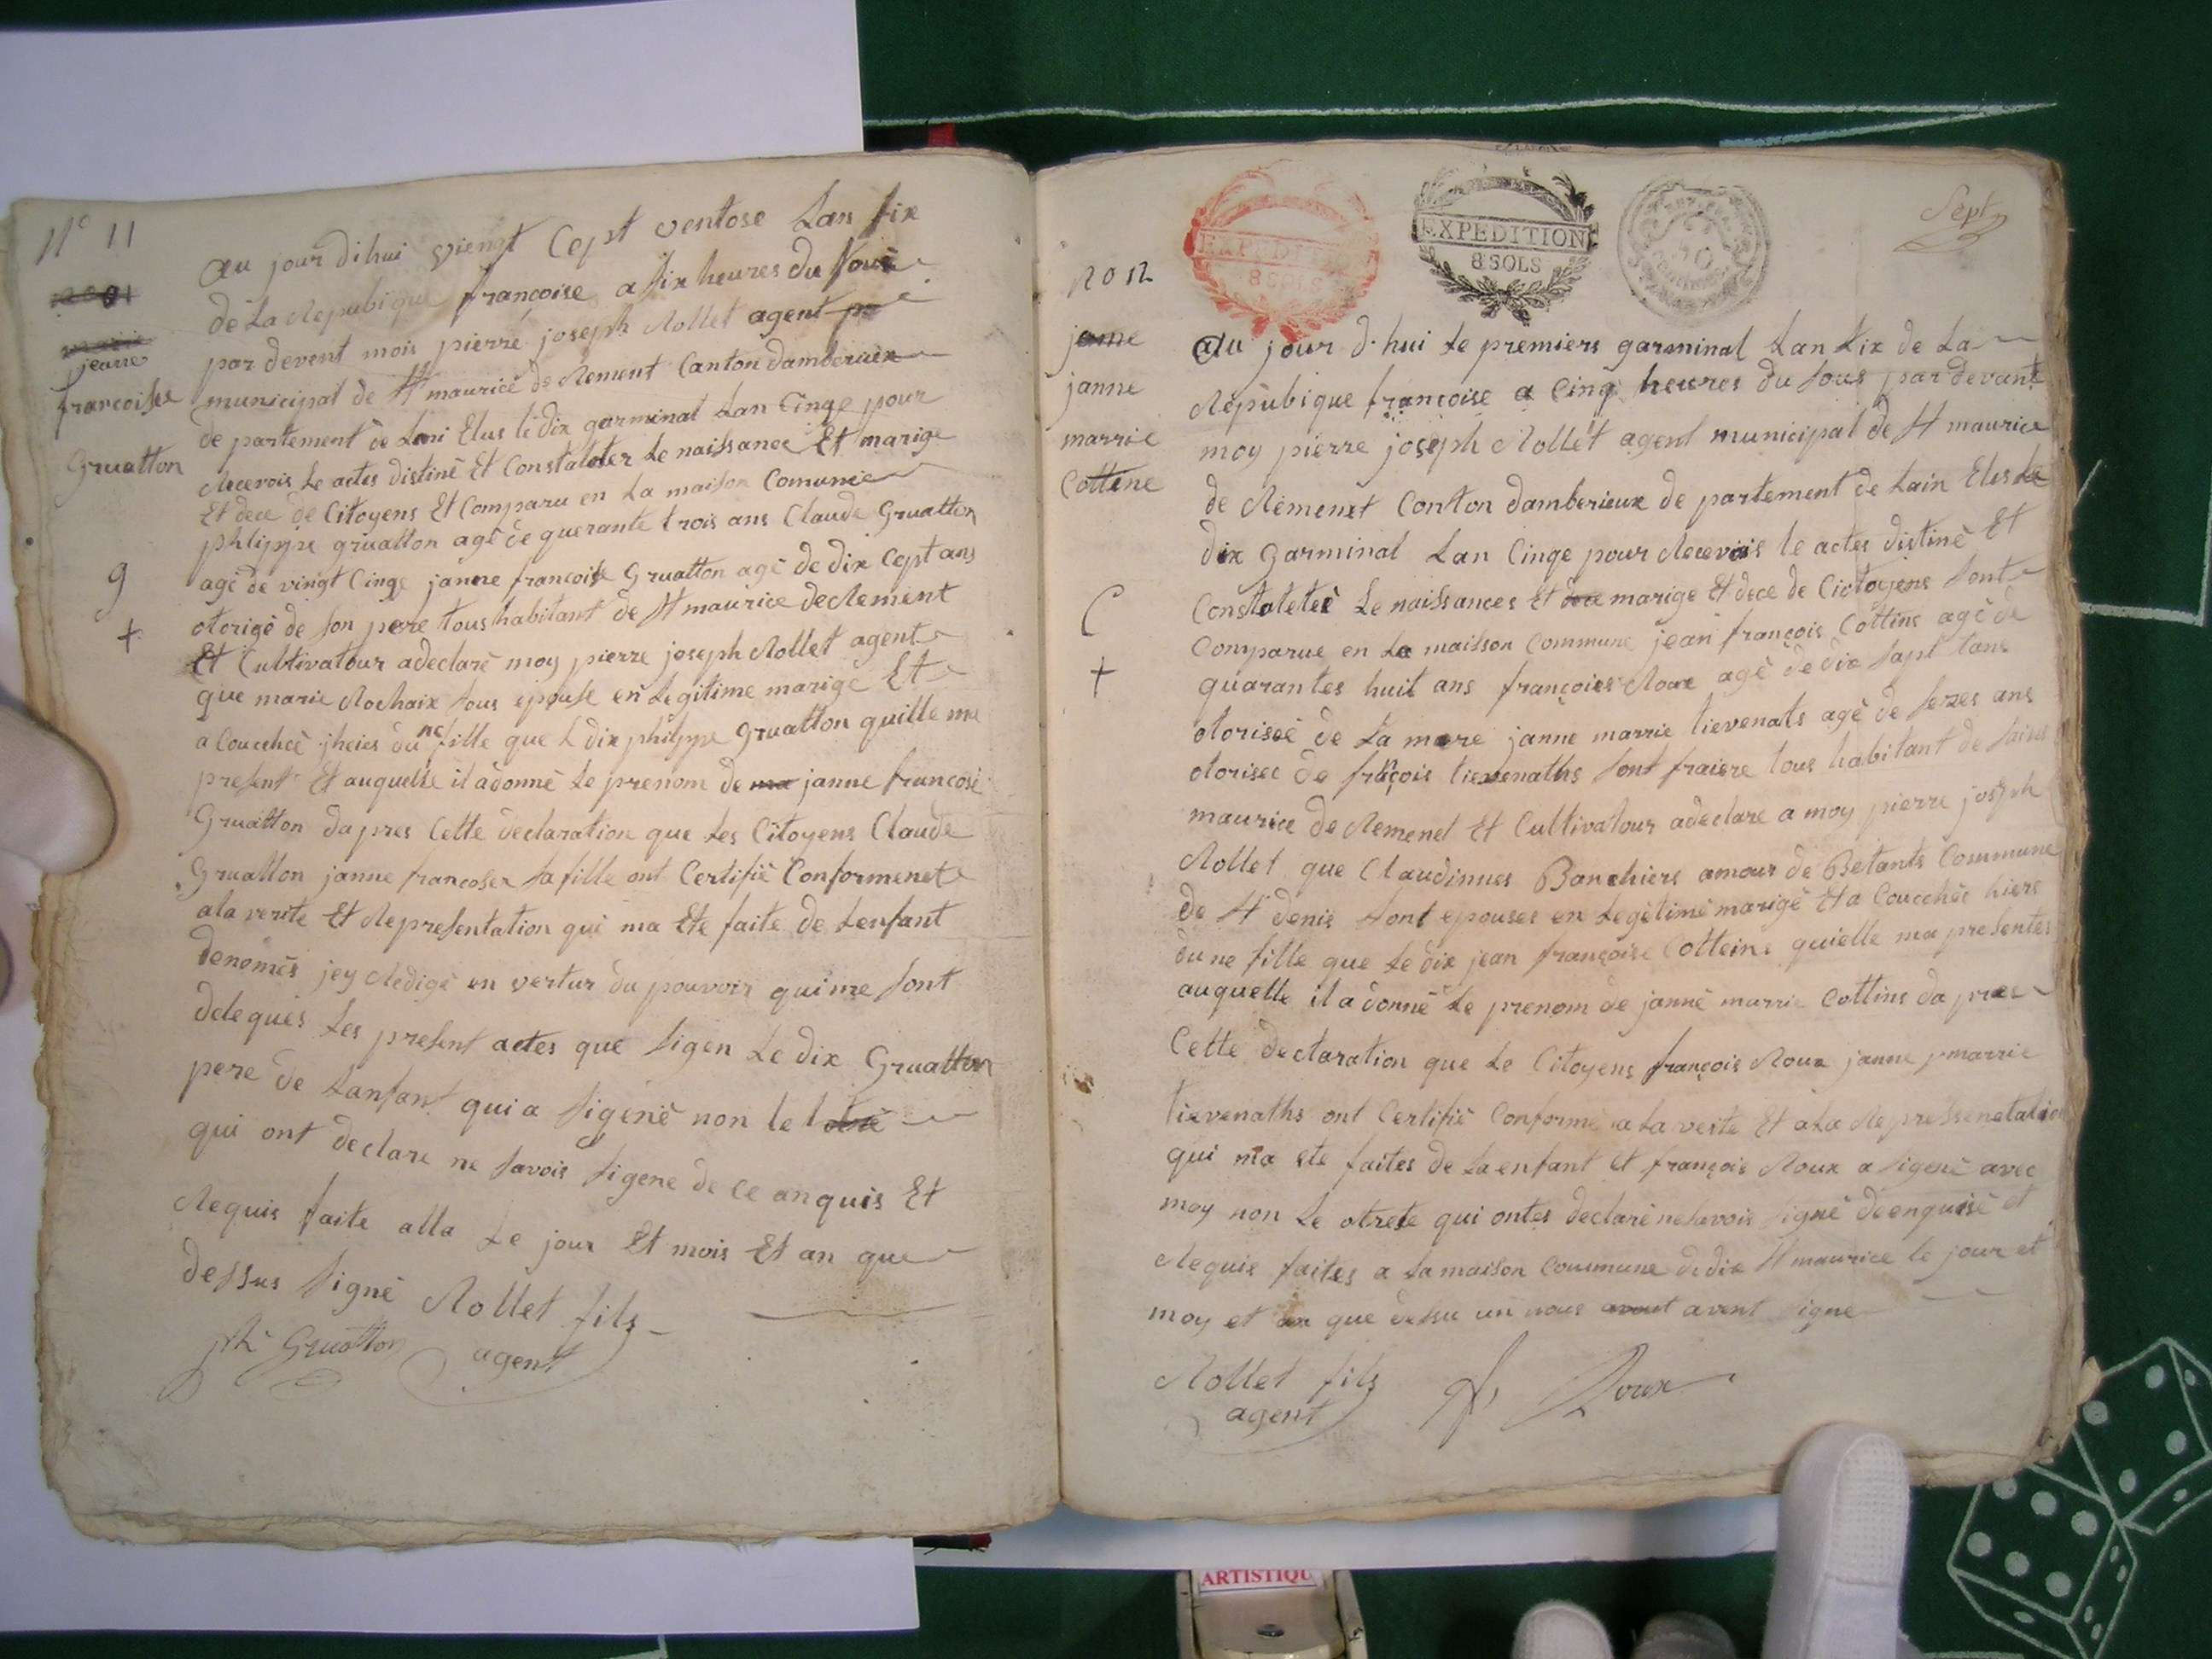 N° 11
jeanne
francoise
Gruatton
g
+
au jour dihui vienqt Cept ventose Lan six
de La Republique françoise a six heures du Soire
par devent mois pierre joseph Rollet agent
municipal de St maurice de Rement Canton damberieux
de partement de Lani Elus le dix garminal Lan Cinge pour
Recevois Le actes distinè Et Constateter Le naissance Et marige
Et dece de Citoyens Et Comparu en La maison Comunie
philippe gruatton agè de querante trois ans Claude Gruatton
agè de vingt Cinge janne francoise Gruatton agè de dix Cept ans
otorigè de son pere tous habitant de St maurice de Rement
Et Cultivatour adeclarè moy pierre joseph Rollet agent
que marie Rochaix sous epouse en Legitime marigè Et
a Coucchcè jheies dune fille que L dix philippe Gruatton quille ma
present Et auquelle il a donnè Le prenom de janne francose
Gruatton dapres Cette declaration que Les Citoyens Claude
Gruatton janne francoser sa fille ont Certifiè Conformenet
a la verite Et Representation qui ma Ete faite de Lenfant
denomès jey Redigè en vertur du pouvoir qui me sont
deleguès Les present actes que sigen Le dix Gruatton
pere de Lanfant qui a sigenè non le
qui ont declare ne savois sigene de ce anquis Et
Requis faite alla Le jour Et mois Et an que
dessus signè Rollet fils
agent
ph Gruatton
Sept
EXPEDITION
8 SOLS
EXPEDITION
8 SOLS
no 12
janne
marrie
Cottine
C
+
au jour d.hui Le premiers garminal Lan Six de La
Republique françoise a Cinq heures du sous par devant
moy pierre joseph Rollet agent municipal de St maurice
de Rement Conton damberieux de partement de Lain Elus Le
dix garminal Lan Cinge pour Recevois le actes distinè Et
Constateteè Le naissances Et marige Et dece de Cictoyens sont
Comparue en La maisson Commune jean françois Cottins agè de
quarantes huit ans françoies Roux agè de dix sapt tans
otoriseè de La mere janne marrie tievenats agè de sezes ans
otorisec de fraçois tievenaths sont fraiere tous habitant de sains
maurice de Remenet Et Cultivatour adeclare a moy pierre joseph
Rollet que Claudinnes Banchiers amour de Betants Commune
de St denis sont epouses en Legètimè marigè Et a Coucchèe hiere
dune fille que Le dix jean françoise Cotteins quielle ma presentes
auquelle il a donnè Le prenom de jannè marrie Cottins da pres
Cette declaration que Le Citoyens françois Roux janne marrie
tievenaths ont Certifiè Conformè a La verite Et a La Represssenetation
qui ma ete faites de La enfant et françois Roux a sigenè avec
moy non Le otrete qui ontes declarè ne savois signè de enquisè et
Requis faites a La maison Commune de dix St maurice le jour et
moy et an que dessu un nous avent signe
Rollet fils
agent
f, Roux
ARTISTIQU